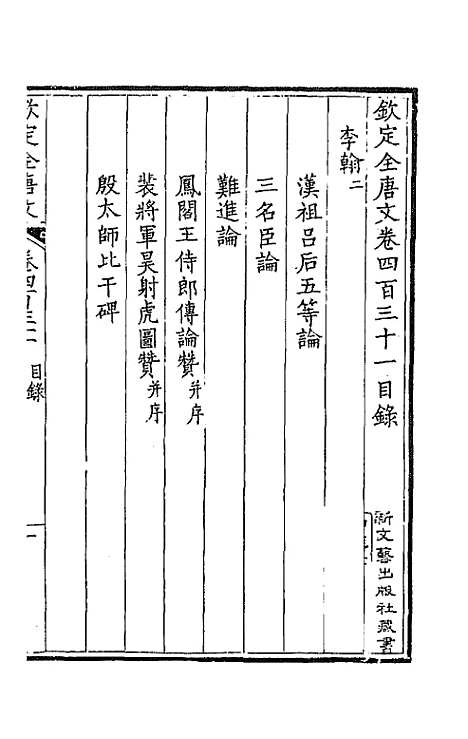 欽定全唐文卷四百三十一目錄
新文藝出版社藏書
李翰二
漢祖呂后五等論
三名臣論
難進論
鳳閣王侍郎傳論贊并序
裴將軍旻射虎圖贊并序
殷太師比干碑
欽定全唐文
卷四百三十一 目錄
一